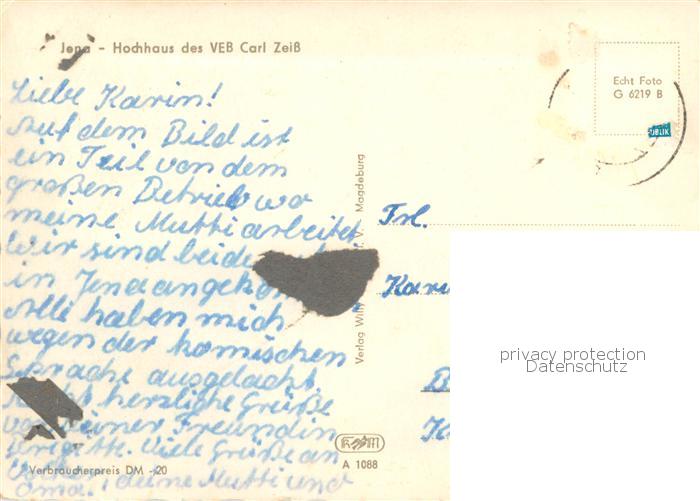 Jena - Hochhaus des VEB Carl Zeiß
Echt Foto
G 6219 B
UBLIK
Liebe Karin!
Auf dem Bild ist
ein Teil von dem
großen Betrieb wo
meine Mutti arbeitet
Wir sind beide
in Jena
Alle haben mich
wegen der komischen
Sprache ausgelacht.
herzliche Grüße
von deiner Freundin
Viele Grüße an
deine Mutti und
Oma.
Verlag Magdeburg
Frl.
Kar
privacy protection
Datenschutz
Verbraucherpreis DM -20
A 1088